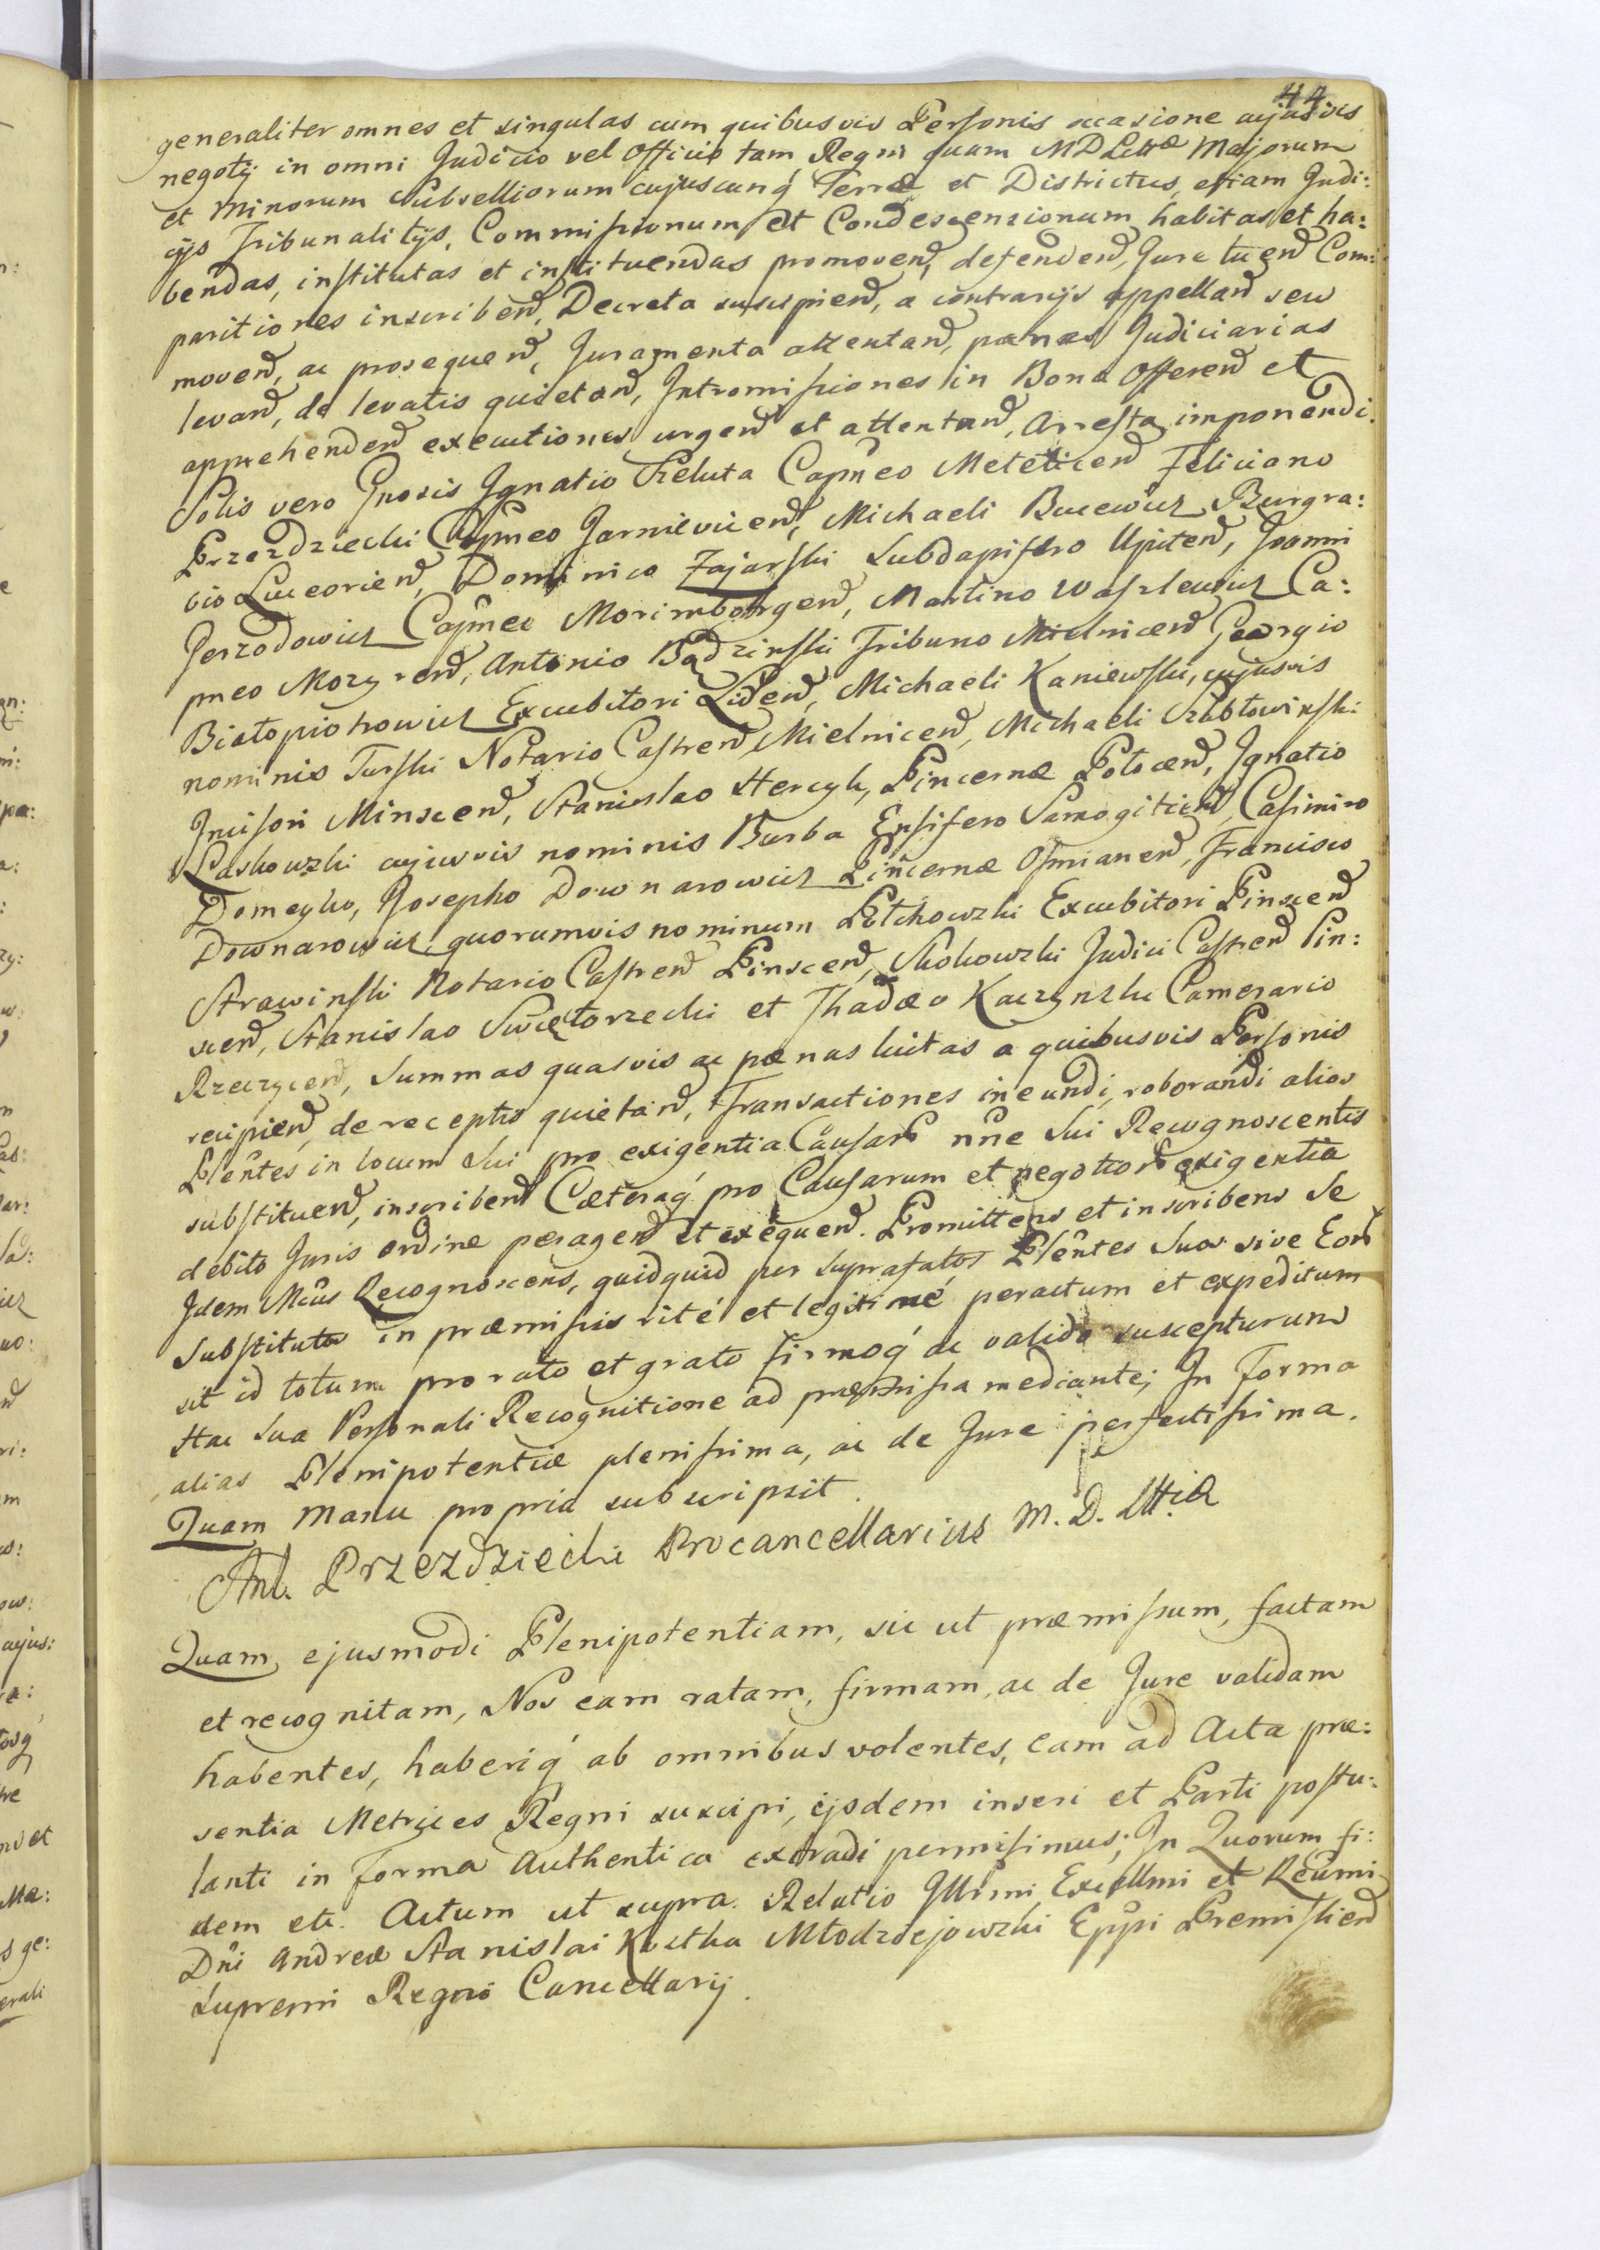 44
generaliter omnes et singulas cum quibusvis Personis occasione cujusvis
negotij in omni Judicio vel Officio tam Regni quam MDLittæ Majorum
et Minorum Subselliorum cujuscunq́ Terræ et Districtus, etiam Judi:
cijs Tribunalitijs, Commissionum et Condescensionum habitas et ha:
bendas, institutas et instituendas promovend, defendend, Jure tuend Com:
paritiones inscribend, Decreta suscipiend, a contrarijs appelland seu
movend, ac prosequend, Juramenta attentand, pœnas Judiciarias
levand, de levatis quietand, Intromissiones in Bona Offerend et
apprehendend executiones urgend et attentand, Arresta imponendi.
Solis vero Gnosis Ignatio Preluta Capneo Metelicend Feliciano
Przezdziecki Capneo Jarnievicend, Michaeli Bucewicz Burgra:
bio Luceoriend, Dominico Zajarski Subdapifero Upitend, Joanni
Jerzodowicz Capneo Morimborgend, Martino Waszlewicz Ca:
pneo Mozyrend, Antonio Bądzinski Tribuno Mielnicend Georgio
Białopiotrowicz Excubitori Lidend, Michaeli Kaniewski, cujusvis
nominis Turski Notario Castrend Mielnicend, Michaeli Szabłowinski
Incisori Minscend, Stanislao Hercyk, Pincernæ Polocend, Ignatio
Laskowzki cujusvis nominis Burba Ensifero Samogitiend, Casimiro
Domeyko, Josepho Downarowicz Pincernæ Osmianend, Francisco
Downarowicz, quorumvis nominum Potchowzki Excubitori Pinscend
Strawinski Notario Castrend Pinscend, Skokowzki Judici Castrend Pin:
scend, Stanislao Swiętorzecki et Thadæo Kaczynzki Camerario
Rzeczycend, Summas quasvis ac pœnas luitas a quibusvis Personis
recipiend, de receptis quietand, Transactiones ineundi, roborandi alios
Plentes in locum Sui pro exigentia Causar nne Sui Recognoscentis
substituend, inscribend Cæteraq́ pro Causarum et negotior exigentia
debito Juris ordine peragend et exequend. Promittens et inscribens Se
Idem Mcus Recognoscens, quidquid per suprafatos Plentes Suos sive Eor
Substitutos in præmissis rité et legitimé peractum et expeditum
sit id totum pro rato et grato firmoq́ ac valido suscepturum
Hac Sua Personali Recognitione ad præmissa mediante; In Forma
alias Plenipotentiæ plenissima, ac de Jure perfectissima.
Quam Manu propria subscripsit.
Ant. Przezdziecki Procancellarius M. D. Litt.iæ
Quam ejusmodi Plenipotentiam, sic ut præmissum, factam
et recognitam, Nos eam ratam, firmam, ac de Jure validam
habentes, haberiq́ ab omnibus volentes, eam ad Acta præ:
sentia Metrices Regni suscipi, ijsdem inseri et Parti postu:
lanti in Forma Authentica extradi permisimus; In Quorum fi:
dem etc. Actum ut supra. Relatio Illmi Excellmi et Reumi
Dni Andreæ Stanislai Kostka Młodziejowzki Eppi Premisliend
Supremi Regni Cancellarij.